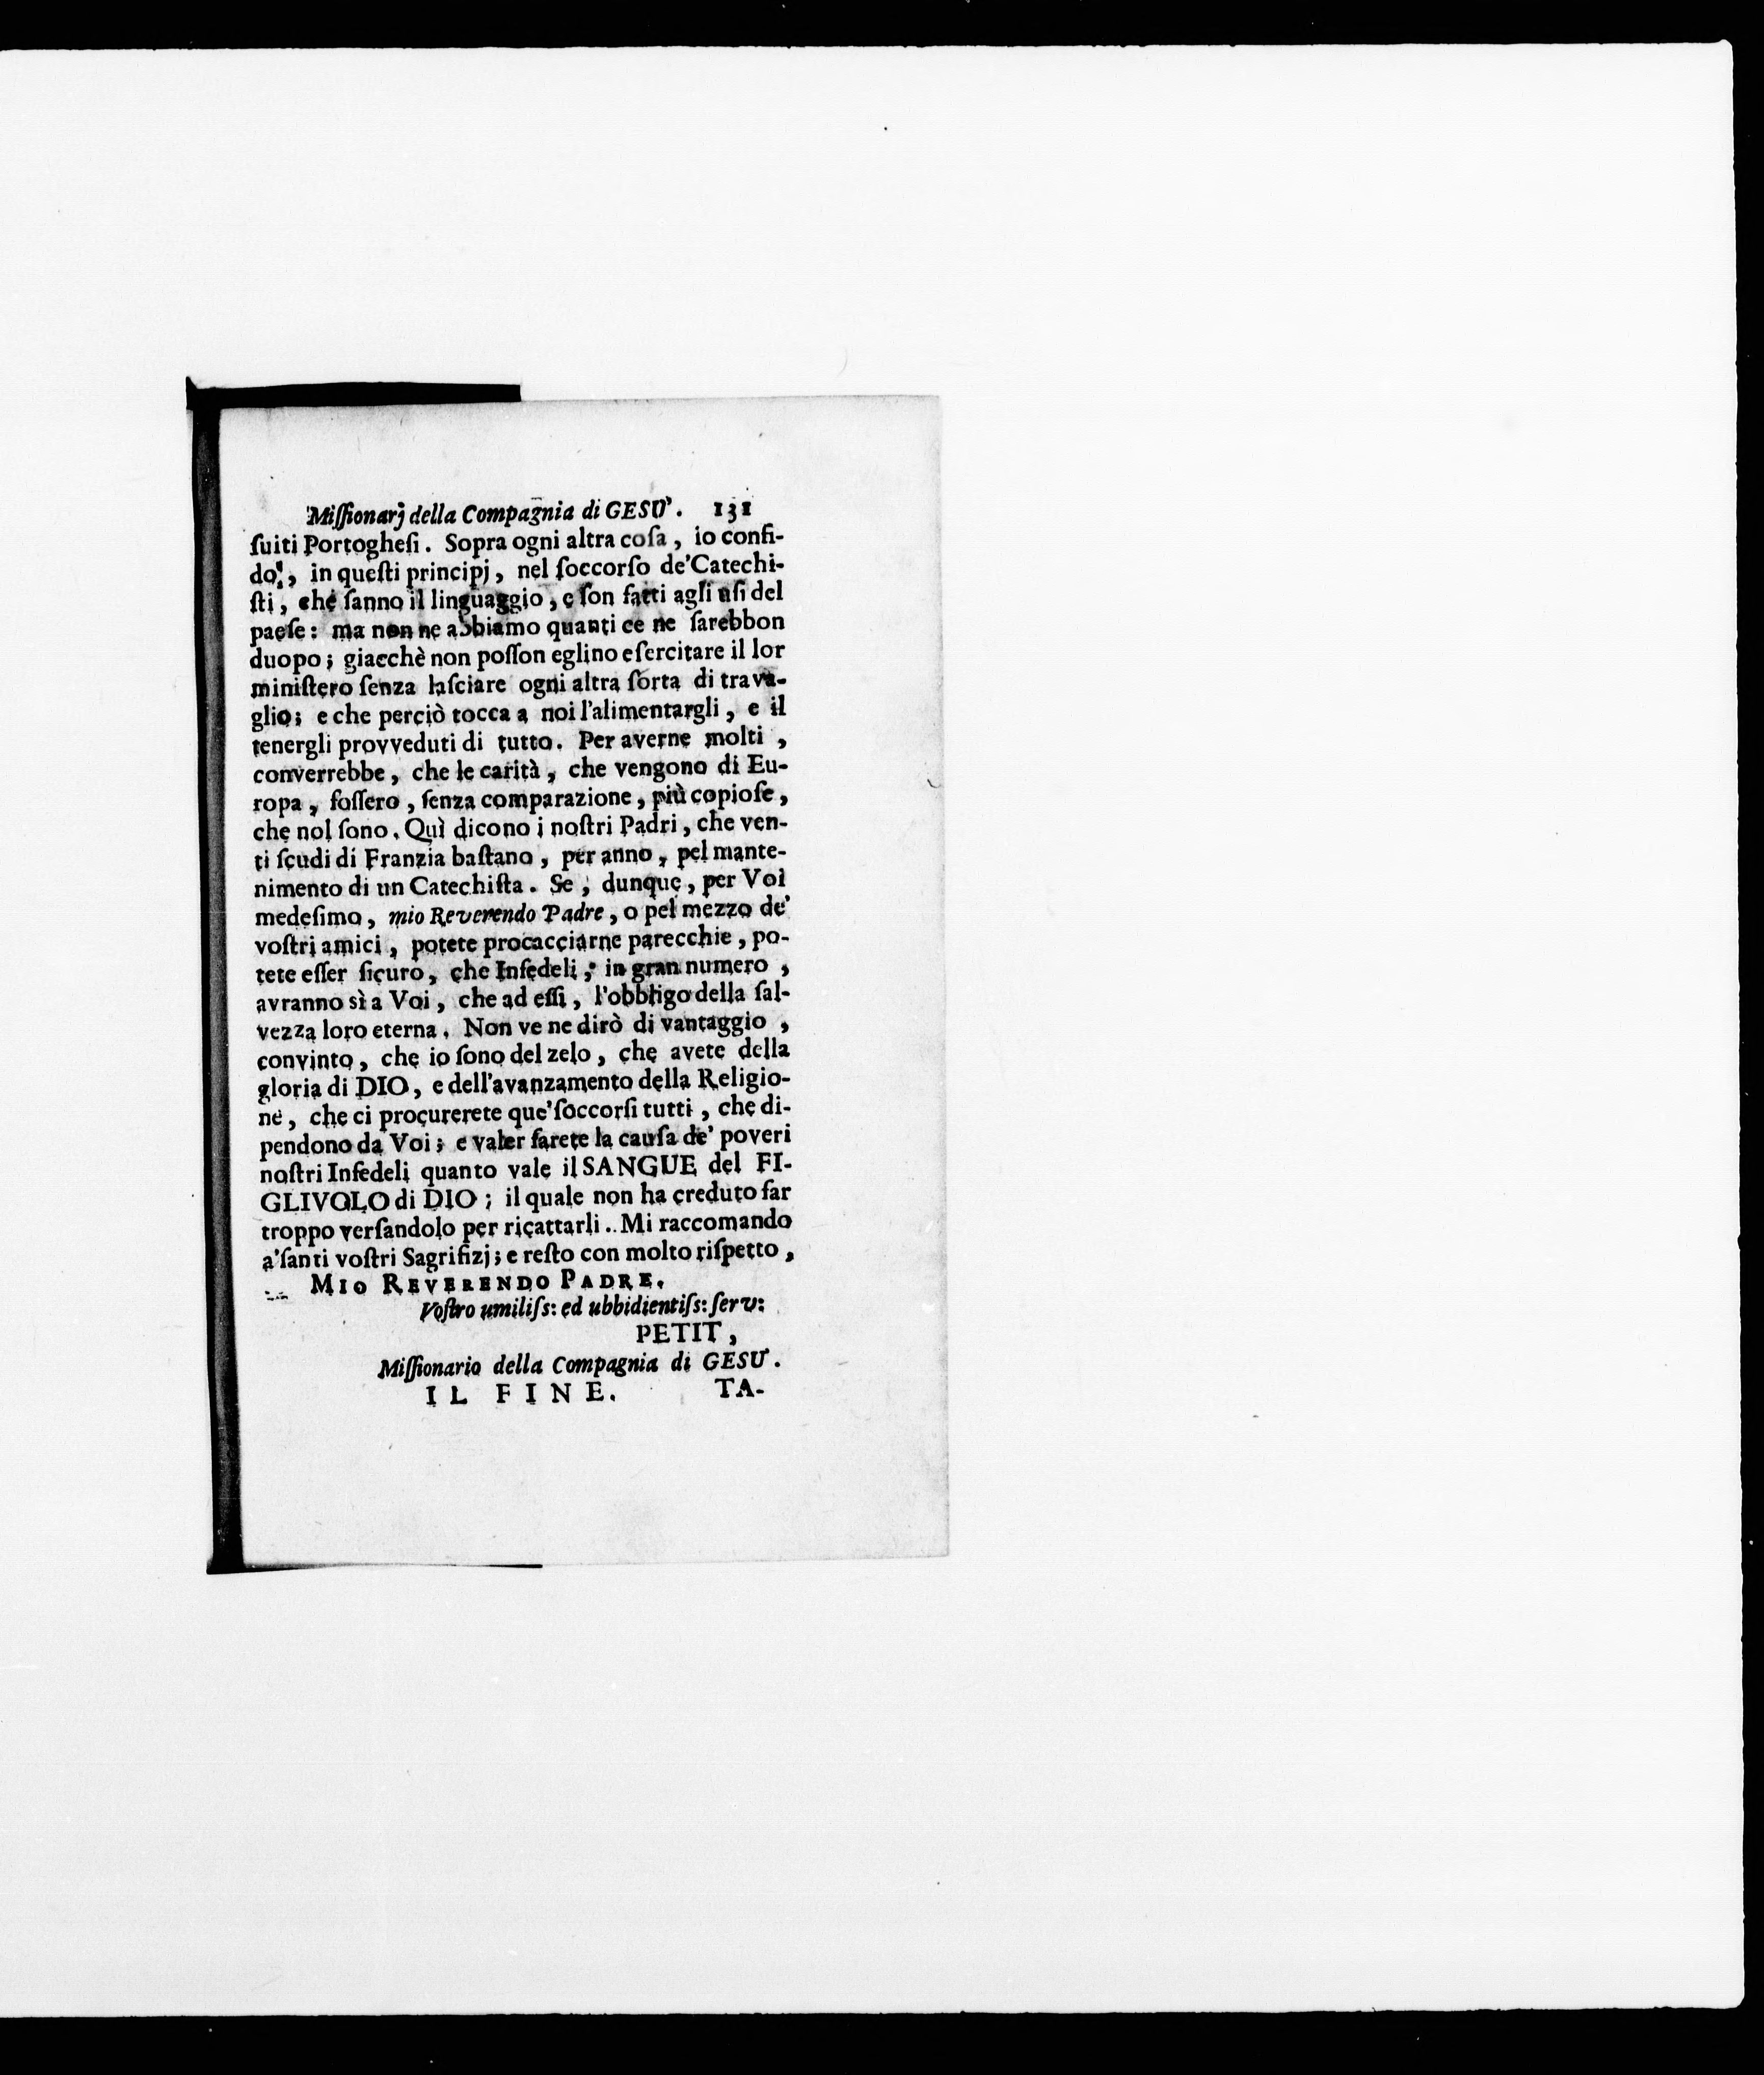 Miſſionarj della Compagnia di GESU'. 131
ſuiti Portogheſi. Sopra ogni altra coſa, io confi-
do, in queſti principj, nel ſoccorſo de'Catechi-
ſti, che ſanno il linguaggio, e ſon fatti agli uſi del
paeſe: ma non ne abbiamo quanti ce ne ſarebbon
duopo; giacchè non poſſon eglino eſercitare il lor
miniſtero ſenza laſciare ogni altra ſorta di trava-
glio; e che perciò tocca a noi l'alimentargli, e il
tenergli provveduti di tutto. Per averne molti,
converrebbe, che le carità, che vengono di Eu-
ropa, foſſero, ſenza comparazione, più copioſe,
che nol ſono. Quì dicono i noſtri Padri, che ven-
ti ſcudi di Franzia baſtano, per anno, pel mante-
nimento di un Catechiſta. Se, dunque, per Voi
medeſimo, mio Reverendo Padre, o pel mezzo de'
voſtri amici, potete procacciarne parecchie, po-
tete eſſer ſicuro, che Infedeli, in gran numero,
avranno sì a Voi, che ad eſſi, l'obbligo della ſal-
vezza loro eterna. Non ve ne dirò di vantaggio,
convinto, che io ſono del zelo, che avete della
gloria di DIO, e dell'avanzamento della Religio-
ne, che ci procurerete que'ſoccorſi tutti, che di-
pendono da Voi; e valer farete la cauſa de' poveri
noſtri Infedeli quanto vale il SANGUE del FI-
GLIVOLO di DIO; il quale non ha creduto far
troppo verſandolo per ricattarli.. Mi raccomando
a'ſanti voſtri Sagrifizj; e reſto con molto riſpetto,
MIO REVERENDO PADRE.
Voſtro umiliſs: ed ubbidientiſs: ſerv:
PETIT,
Miſſionario della Compagnia di GESU'.
IL FINE. TA-